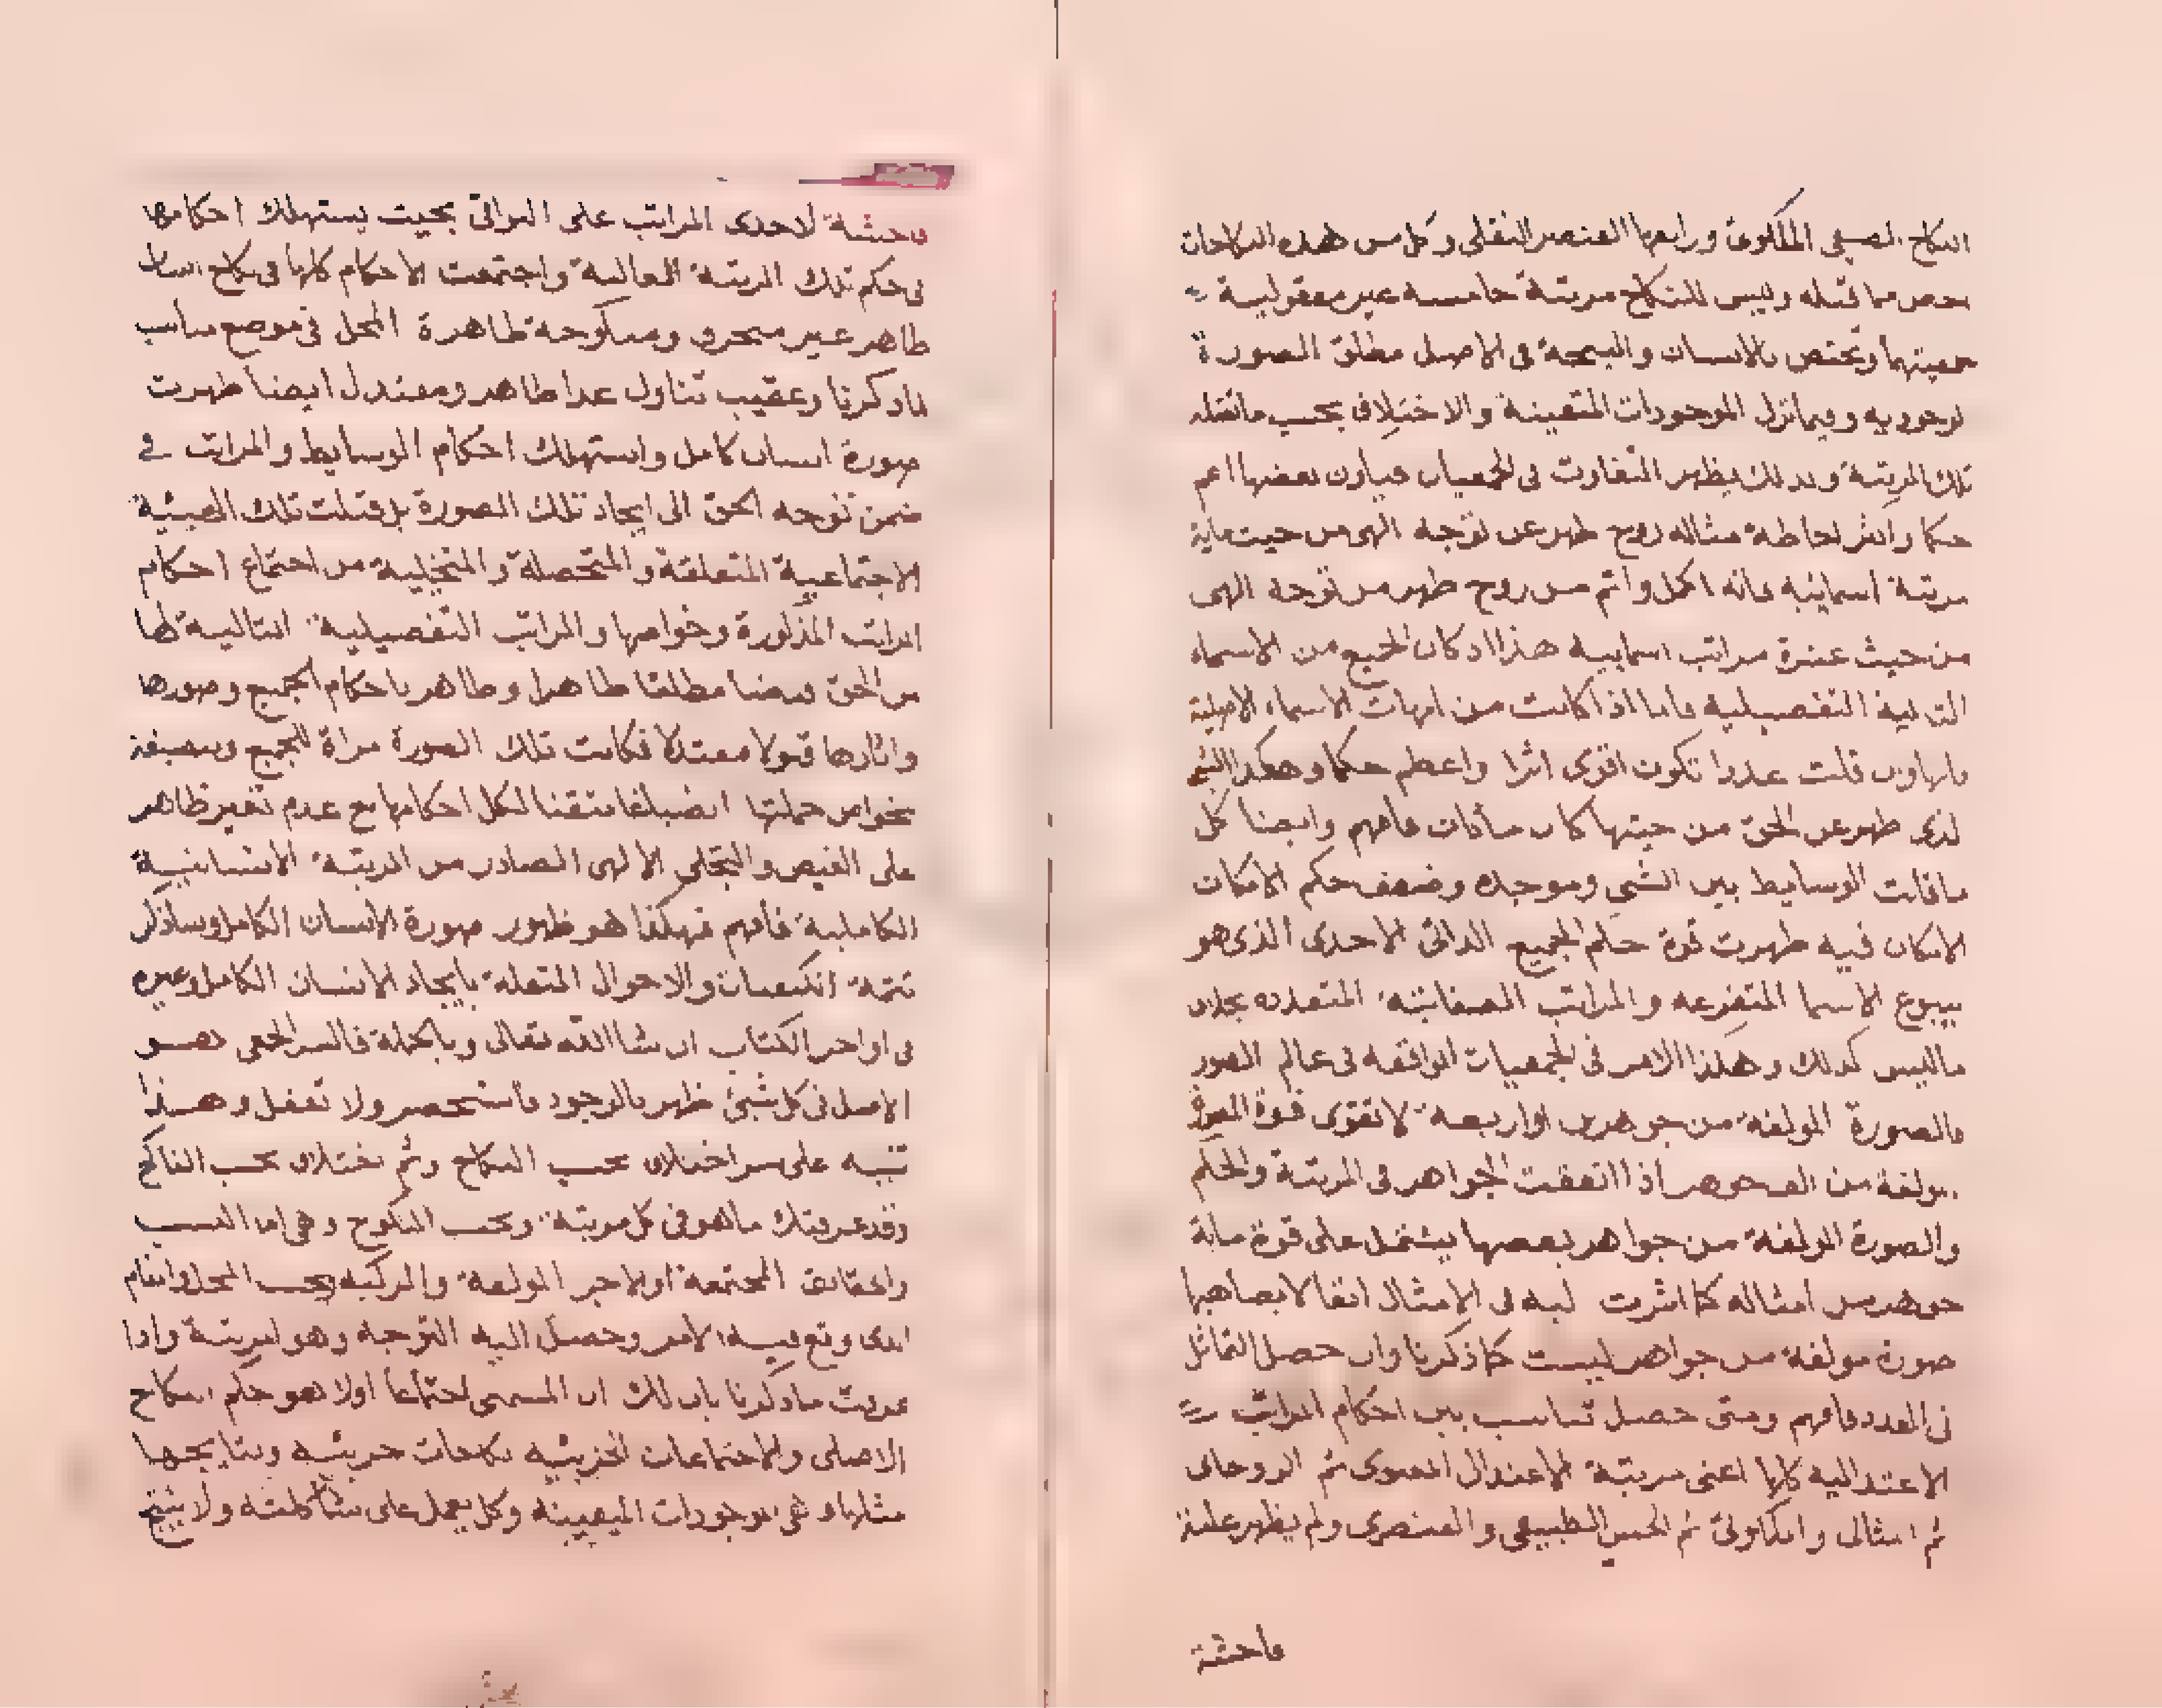 النكاح الطبيعي الملكوتي ورابعها العنصر السفلى وكل من هذه النكاحات
اخص مما قبله وليس للنكاح مرتبة خامسة غير معقولية
جمعيتها وتختص بالانسان والنتيجة في الاصل مطلق الصورة
الوجودية وفيما نزل الموجودات المتعينة والاختلاف بحسب ما تقبله
تلك المرتبة وبذلك يظهر التفاوت في الجمعيات فيكون بعضها اعم
حكما واكثر احاطة مثاله روح ظهر عن توجه الهى من حيث ماية
مرتبة اسمائية فانه اكمل واتم من روح ظهر من توجه الهى
من حيث عشرة مراتب اسمائية هذا اذا كان الجميع من الاسماء
التالية التفصيلية فاما اذا كانت من امهات الاسماء الاصلية
فانها وان قلت عددا تكون اقوى اثرا واعظم حكما وهكذا الشى
لذى ظهر عن الحق من حيثها كان ما كان فافهم وايضا كل
ما قلت الوسايط بين الشى وموجده وضعف حكم الامكان
الامكان فيه ظهرت قوة حكم الجميع الذاتى الاحدى الذى هو
ينبوع الاسما المتفرعه والمراتب الصفاتية المتعدده بخلاف
ماليس كذلك وهكذا الامر فى الجمعيات الواقعه فى عالم الصور
فالصورة المولفة من جوهرين او اربعة لا تقوى قوة الصورة
المولفة من الف جوهر اذا اتفقت الجواهر فى المرتبة والحكم
والصورة المولفة من جواهر بعضها يشتمل على قوة ماية
جوهر من امثاله كما اشرت اليه فى الامثال انفا لا يضاهيها
صورة مولفة من جواهر ليست كما ذكرنا وان حصل التماثل
فى العدد فافهم ومتى حصل تناسب بين احكام المراتب
الاعتداليه كلها اعنى مرتبة الاعتدال المعنوى ثم الروحانى
ثم المثالى والملكوتى ثم الحسى الطبيعى والعنصرى ولم يظهر غلبة
فاحشة
فاحشة لاحدى المراتب على البواقى بحيث يستهلك احكامها
فى حكم تلك المرتبة الغالبة واجتمعت الاحكام كلها فى نكاح انسان
طاهر غير منحرف ومنكوحة طاهرة المحل فى موضع مناسب
لما ذكرنا وعقيب تناول غذا طاهر ومعتدل ايضا ظهرت
صورة انسان كامل واستهلك احكام الوسايط والمراتب فى
ضمن توجه الحق الى ايجاد تلك الصورة بل قبلت تلك الهيئة
الاجتماعية المتعلقة والمتحصلة والمتخلية من اجتماع احكام
المراتب المذكورة وخواصها والمراتب التفصيلية التالية لها
من الحق فيضا مطلقا طاهرا وظاهر باحكام الجميع وصورها
واثارها قبولا معتدلا فكانت تلك الصورة مراة للجميع ومنصبغة
بخواص جملتها انصباغا متقنا لكل احكامها مع عدم تغيير ظاهر
على الفيض والتجلى الالهى الصادر من المرتبة الانسانية
الكاملية فافهم فهكذا هو ظهور صورة الانسان الكامل وساذكر
تتمة الكيفيات والاحوال المتعلقة بايجاد الانسان الكامل وغيره
فى اواخر الكتاب ان شا الله تعالى وبالجملة فالسر الجمعى هو
الاصل فى كل شئ ظهر بالوجود فاستحضر ولا تغفل وهذا
تنبيه على سر اختلاف بحسب النكاح وثم اختلاف بحسب الناكح
وقد عرفتك ما هو فى كل مرتبة وبحسب المنكوح وهى اما النسب
والحقايق المجتمعة او الاجزا المولفة والمركبه وبحسب المحل والمقام
الذى وقع فيه الامر وحصل اليه التوجه وهو المرتبة واذا
عرفت ما ذكرنا بان لك ان المسمى اجتماعا اولا هو حكم النكاح
الاصلى والاجتماعات الجزئيه نكاحات جزئيه ونتايجها
مثلها وهى الموجودات المتعينه وكل يعمل على شاكلته ولا ينتج